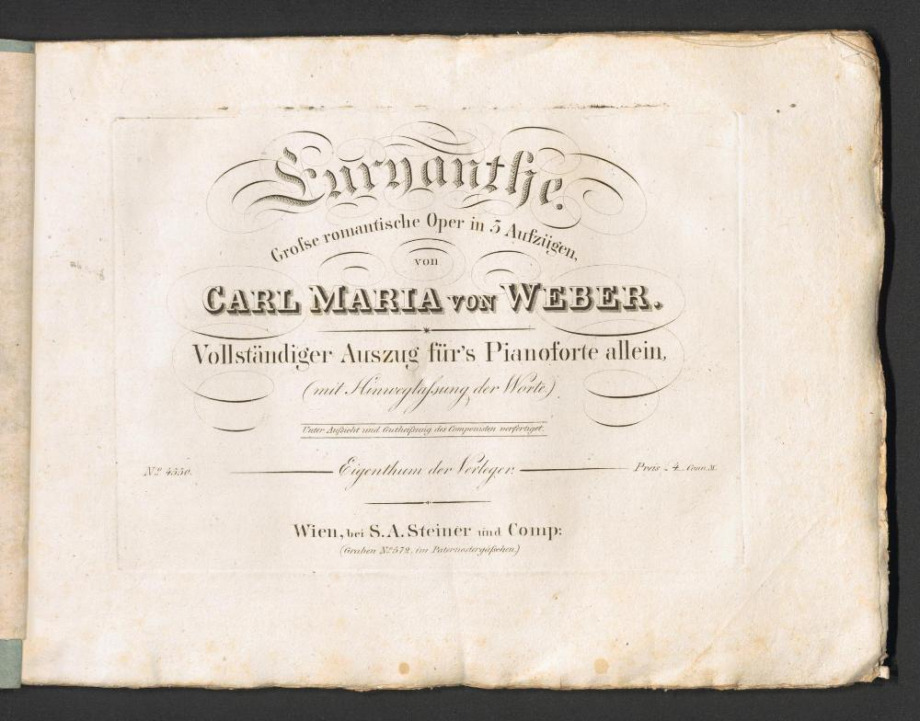 Euryanthe.
Grofse romantische Oper in 3 Aufzügen,
von
CARL MARIA VON WEBER.
Vollständiger Auszug für's Pianoforte allein,
(mit Hinweglafsung der Worte)
Unter Aufsicht und Gutheifsung des Componisten verfertiget.
No. 4550. Eigenthum der Verleger. Preis
Wien, bei S. A. Steiner und Comp:
(Graben No. 572, im Paternostergäfschen.)